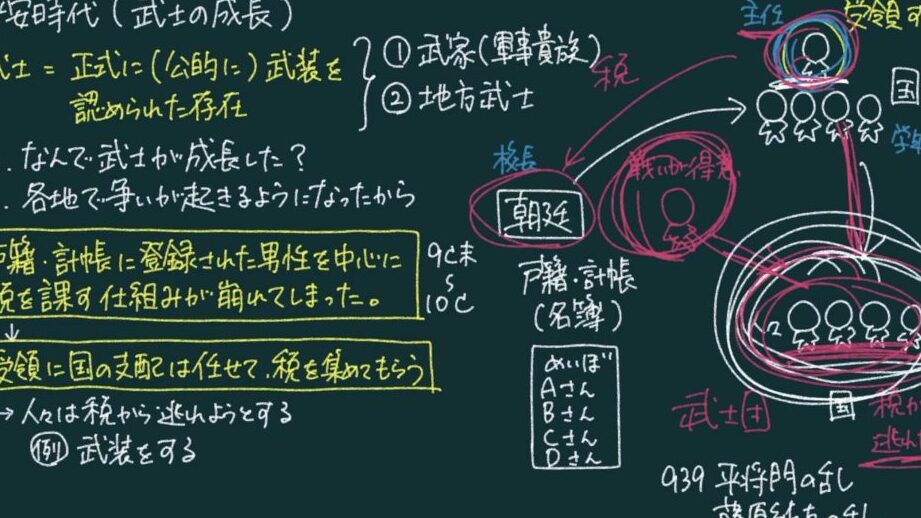 安時代(武士の成長)
士 = 正式に(公的に)武装を
認められた存在
① 武家(軍事貴族)
② 地方武士
. なんで武士が成長した?
. 各地で争いが起きるようになったから
籍・計帳に登録された男性を中心に
税を課す仕組みが崩れてしまった。
9C末
〜
10C
↓
受領に国の支配は任せて、税を集めてもらう
→ 人々は税から逃れようとする
例 武装をする
税
校長
朝廷
戸籍・計帳
(名簿)
めいぼ
Aさん
Bさん
Cさん
Dさん
戦いが得意
主任
受領
国
武士団
国
939 平将門の乱
藤原純友の乱